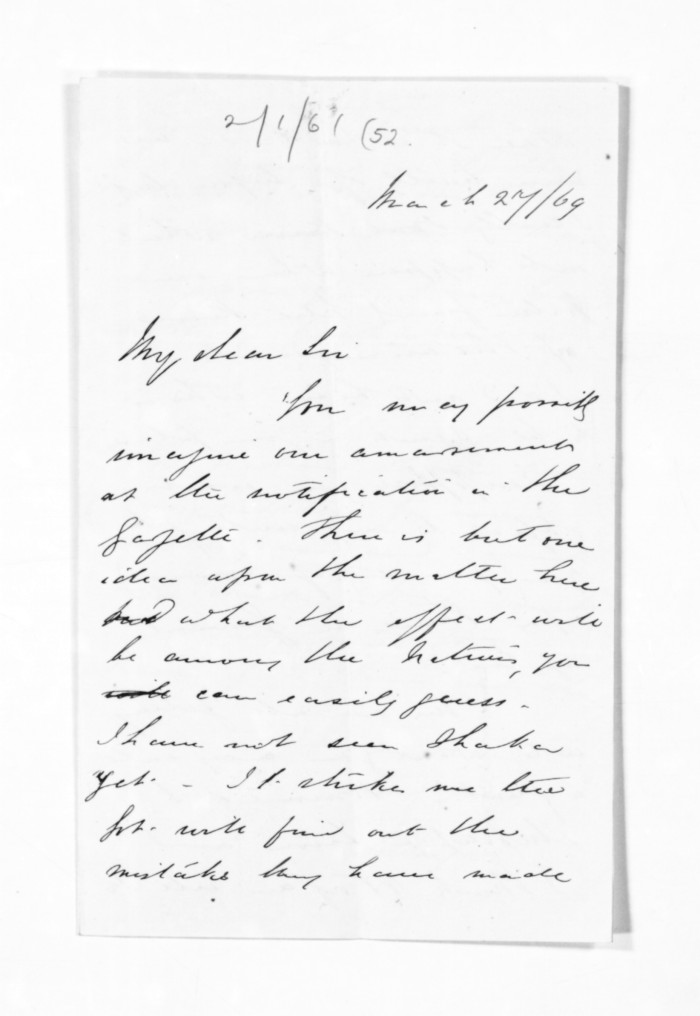 2/1/61 (52.
March 27/69
My dear Sir
You may possibly
imagine our amazement
at the notification in the
Gazette. There is but one
idea upon the matter here
and what the effect will
be among the Natives, you
will can easily guess.
I have not seen Ihaka
yet. - It strikes me the
Govt. will find out the
mistake they have made